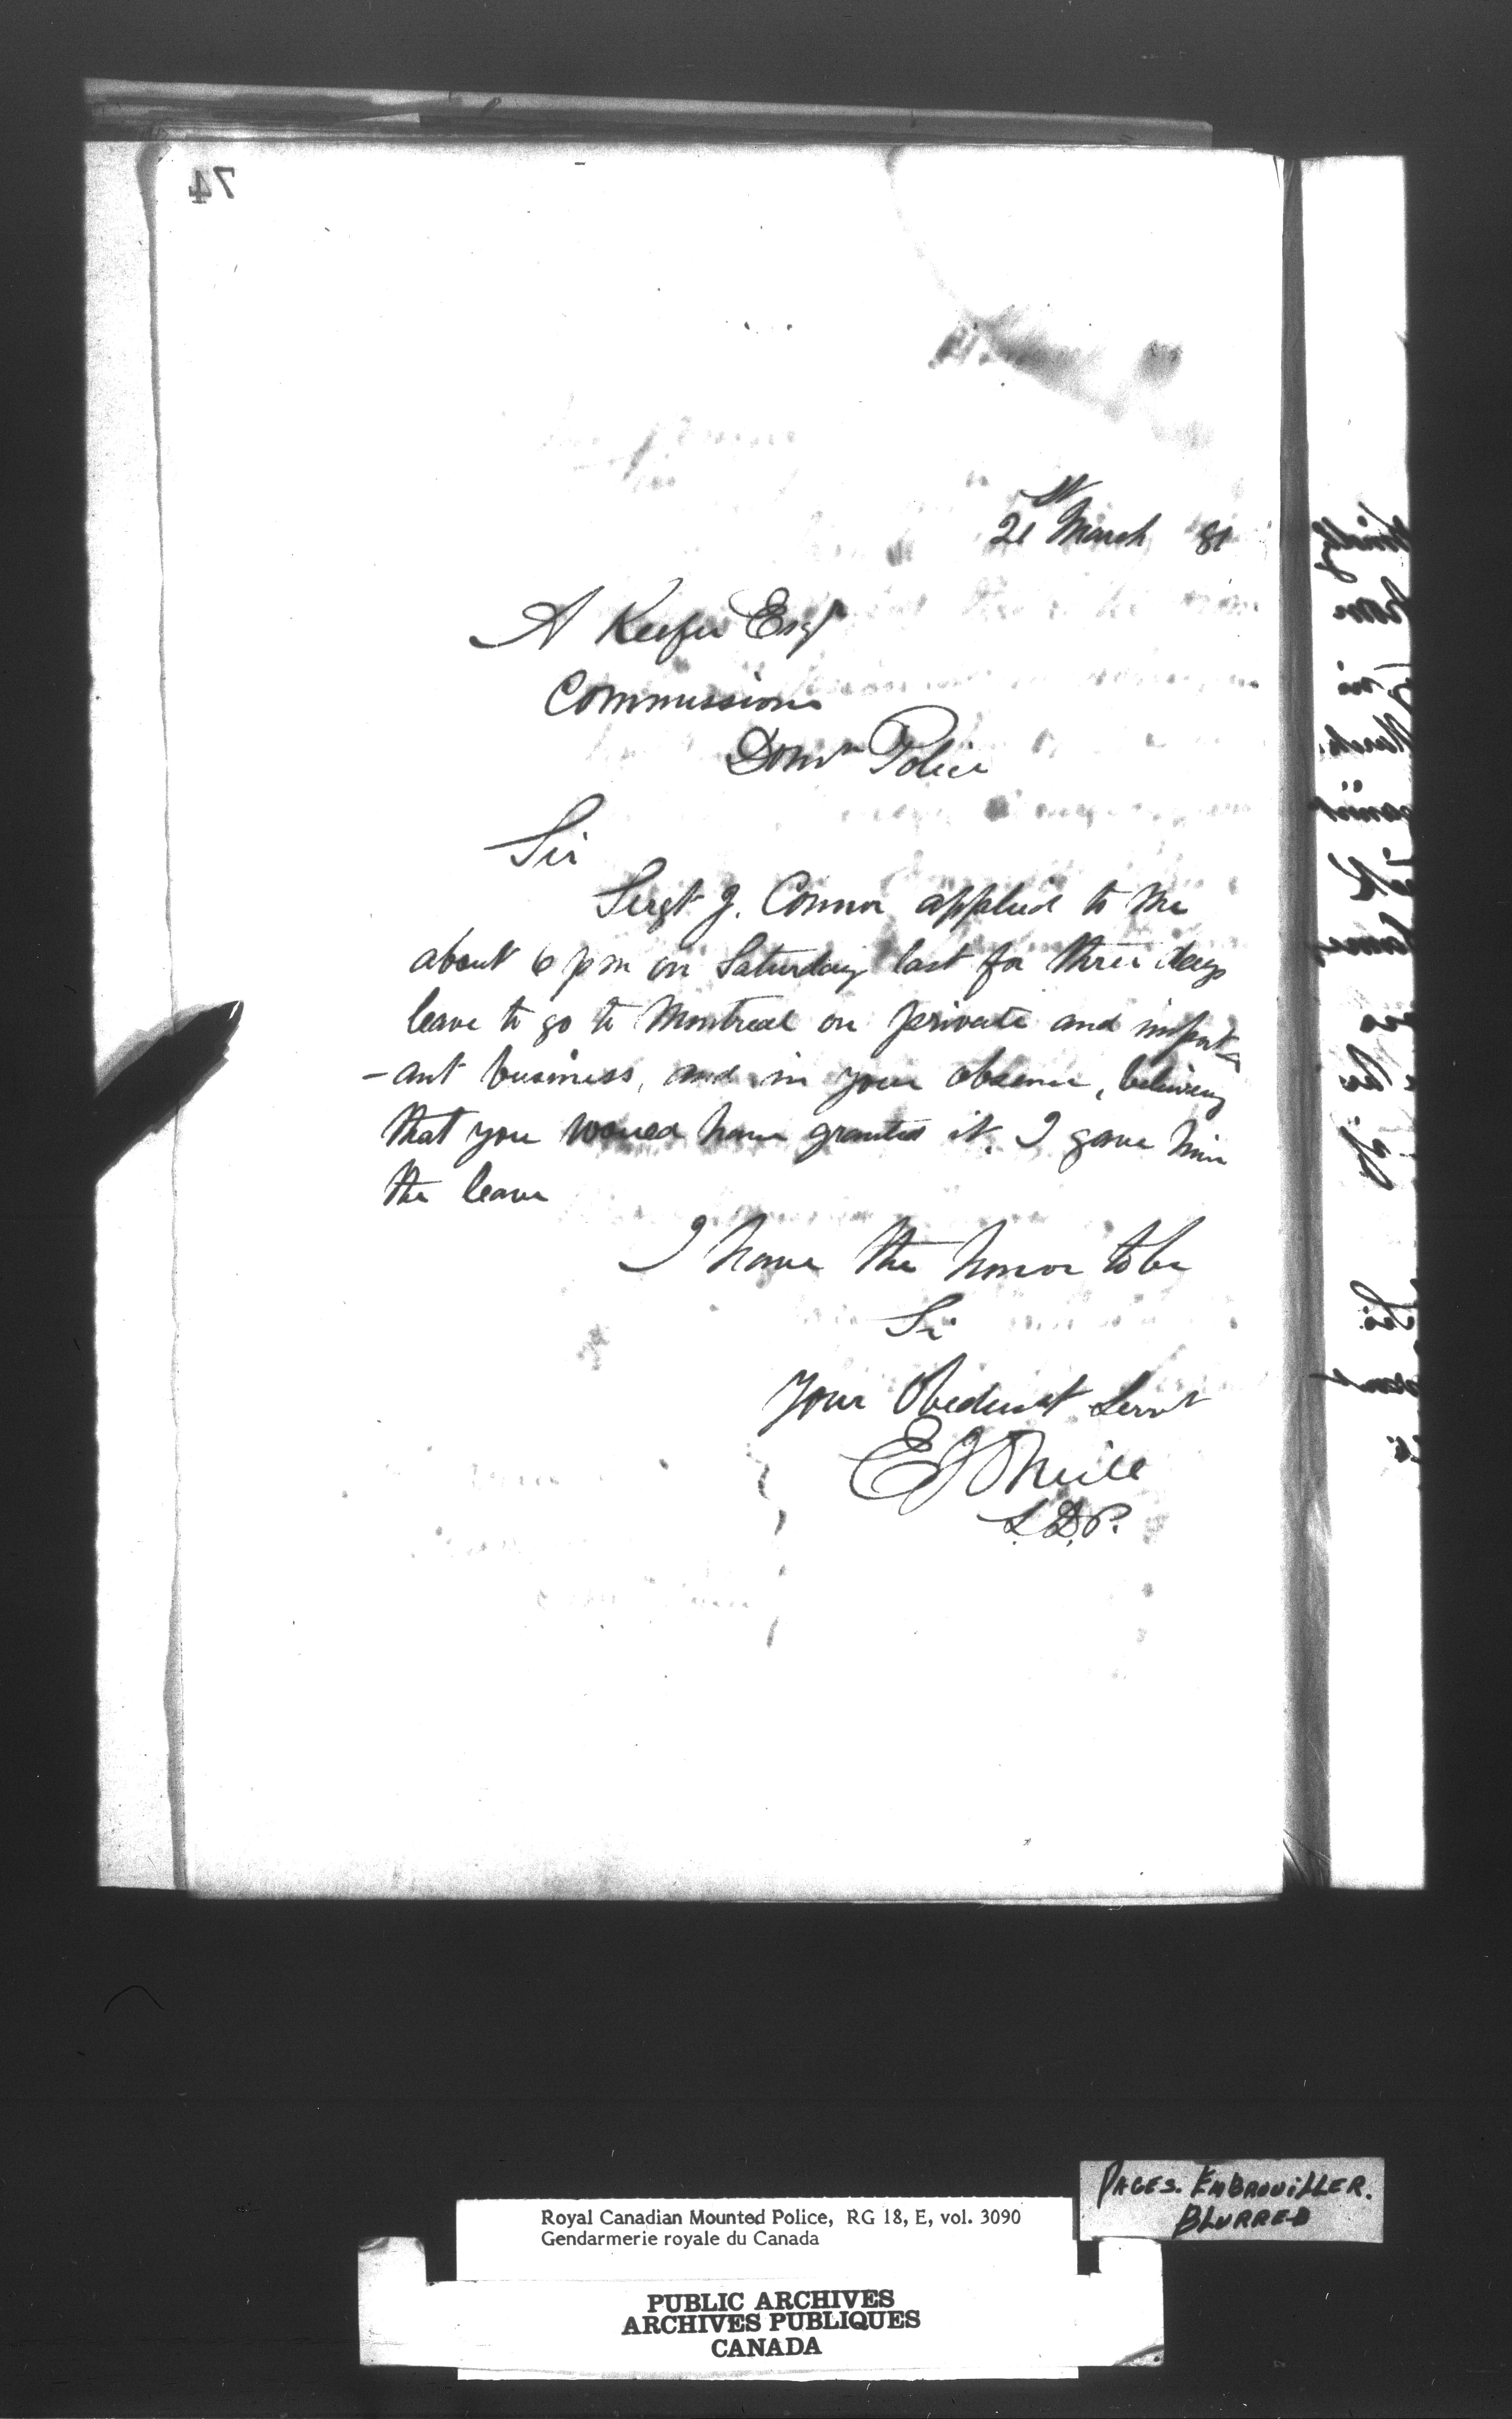 74
21st March 81
A Keefer Esqr
Commissioner
Domn Police
Sir
Sergt J. Connor applied to me
about 6 pm on Saturday last for three days
leave to go to Montreal on private and import
-ant business, and in your absence, believing
that you would have granted it. I gave him
the leave
I have the honor to be
Sir
Your Obedient Servt
E J ONeill
S.D.P.
PAGES. EMBROUILLER.
BLURRED
Royal Canadian Mounted Police, RG 18, E, vol. 3090
Gendarmerie royale du Canada
PUBLIC ARCHIVES
ARCHIVES PUBLIQUES
CANADA